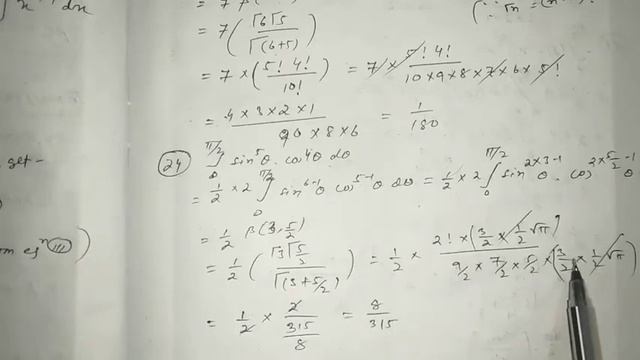 x dx
= 7 β
(∵ √n = (n
= 7 (Γ6 Γ5 / Γ(6+5))
= 7 × (5! 4! / 10!) = 7 × 5! 4! / 10×9×8×7×6×5!
= 4×3×2×1 / 90×8×6 = 1/180
get-
(24) ∫₀^{π/2} sin⁵θ. cos⁴θ dθ
= 1/2 × 2 ∫₀^{π/2} sin^{6-1} cos^{5-1}θ dθ = 1/2 × 2 ∫₀^{π/2} sin^{2×3-1}θ. cos^{2×5/2-1}
om esⁿ (III) )
= 1/2 β(3, 5/2)
= 1/2 (Γ3 Γ5/2 / Γ(3+5/2)) = 1/2 × 2! × (3/2 × 1/2 √π) / 9/2 × 7/2 × 5/2 × (3/2 × 1/2 √π)
= 1/2 × 2 / (315/8) = 8/315